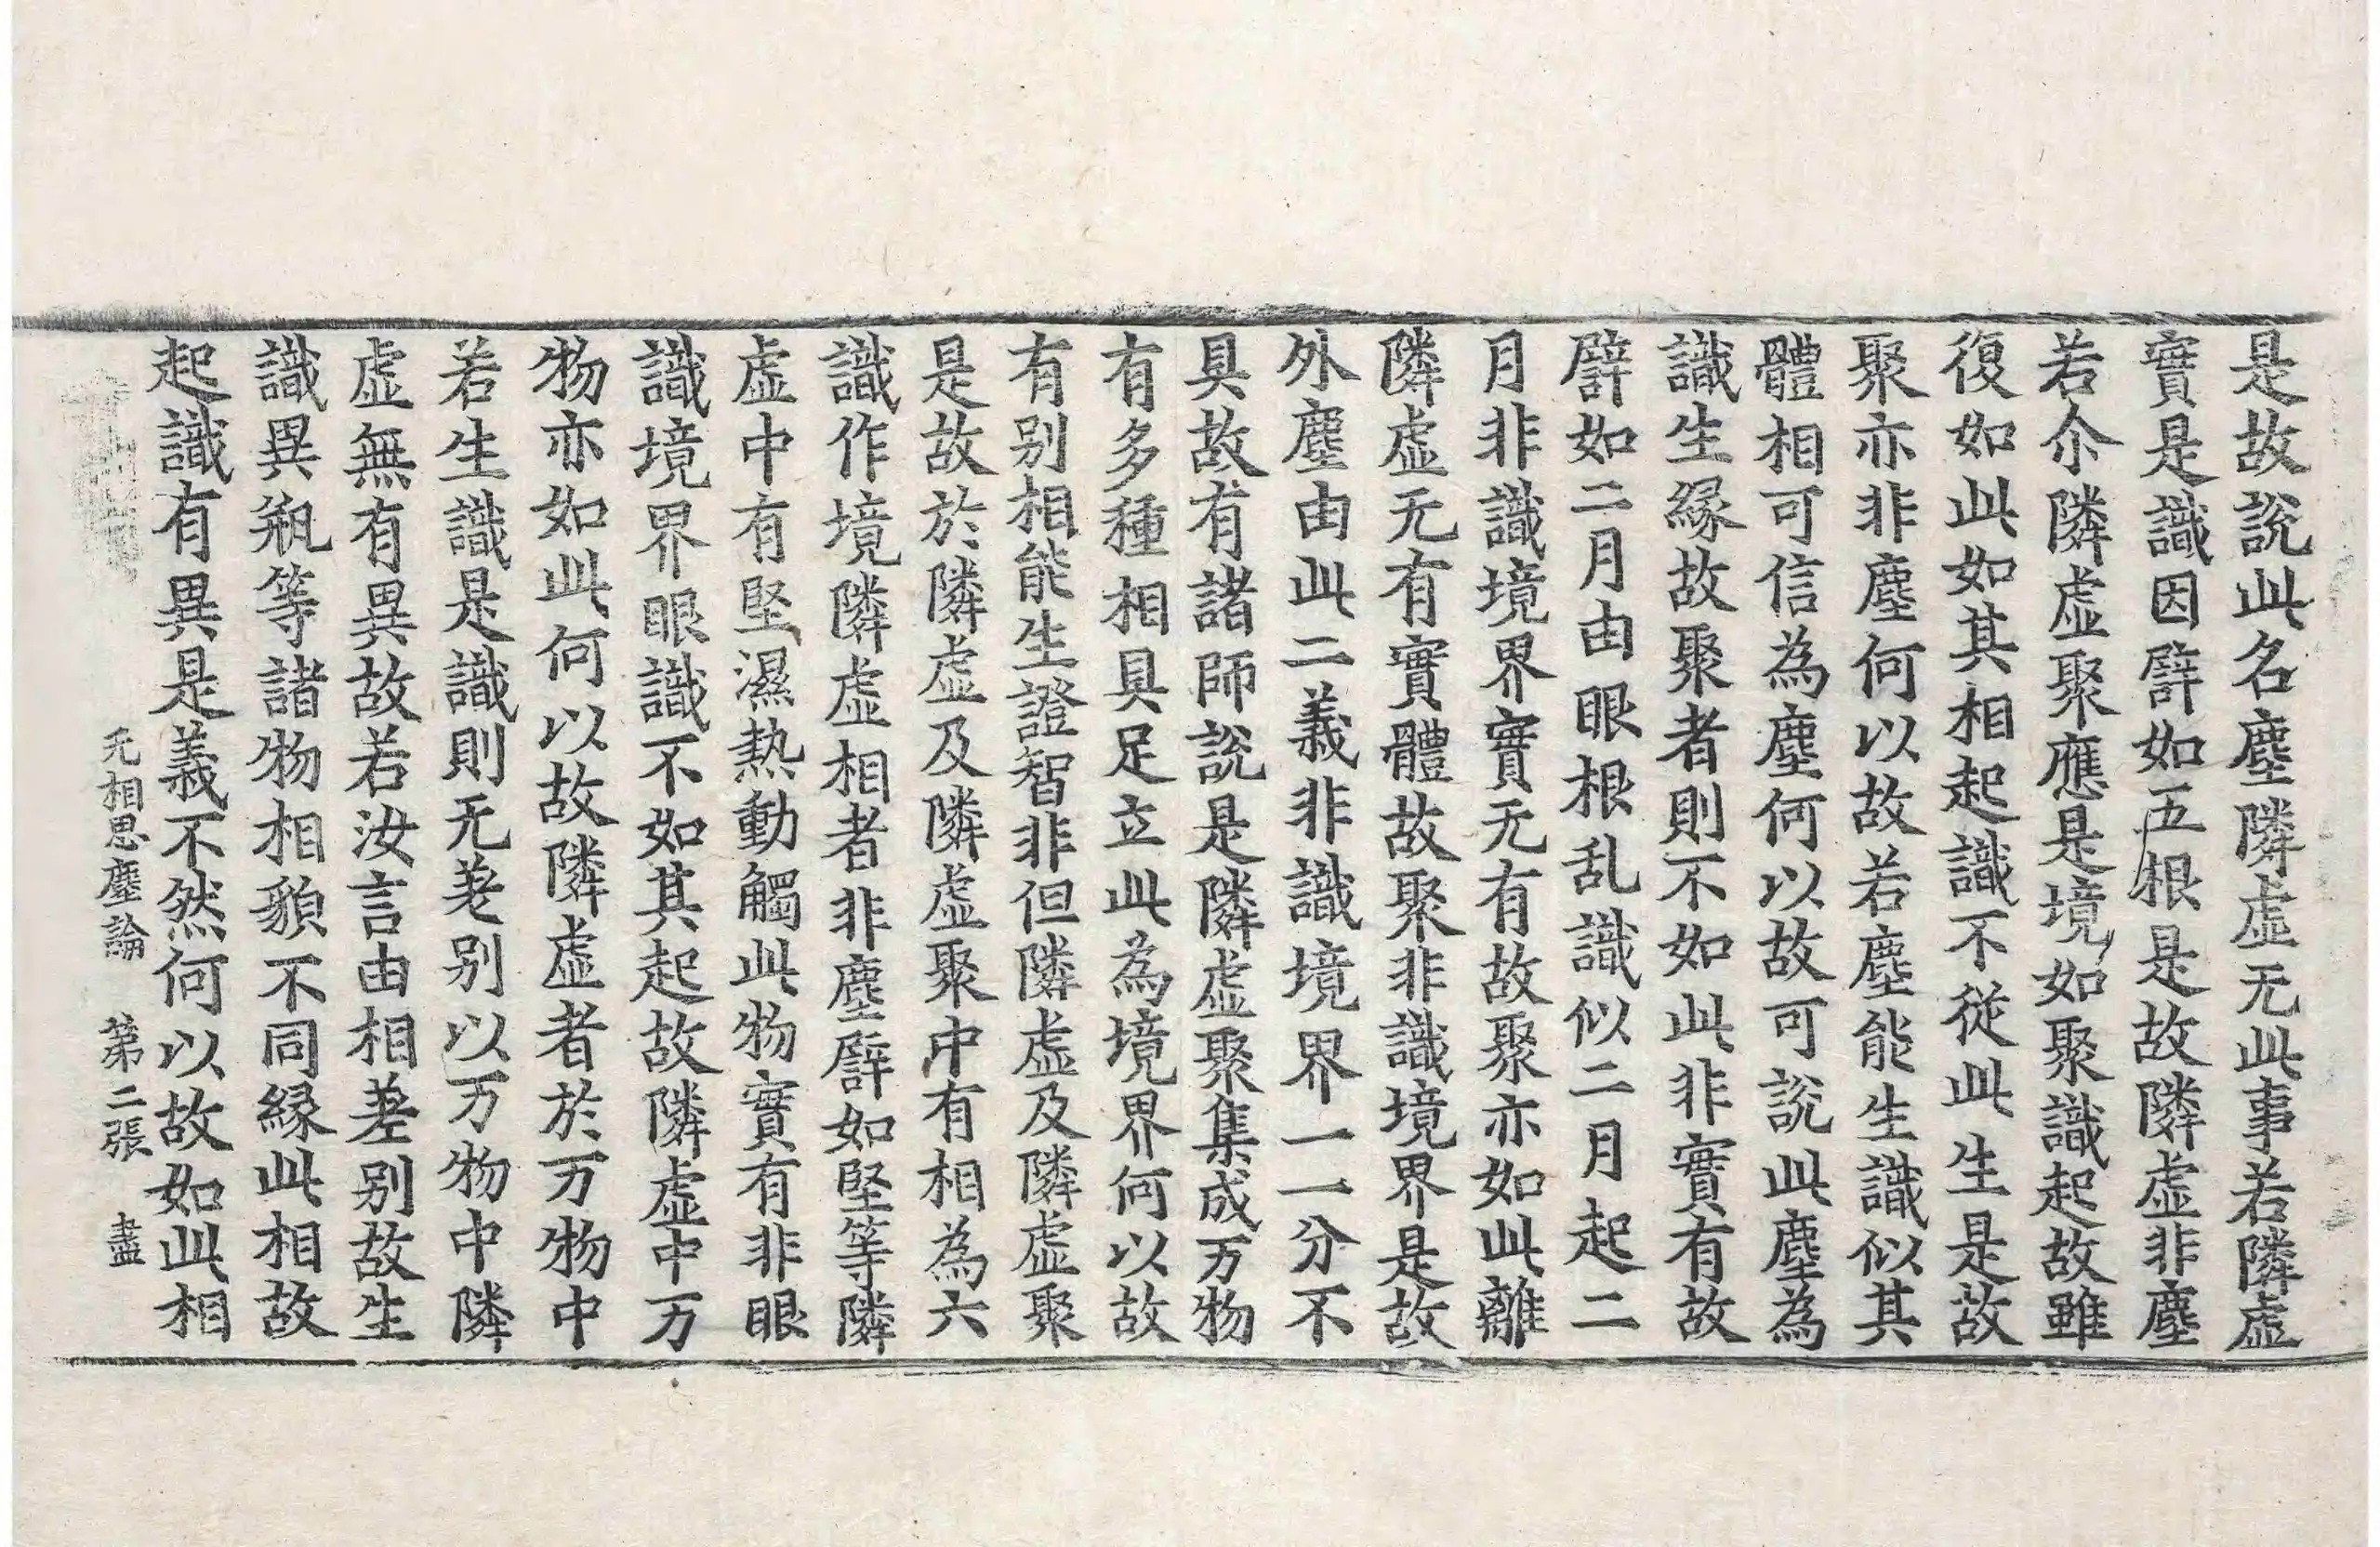 是故說此名塵隣虛无此事若隣虛
實是識因譬如五根是故隣虛非塵
若尒隣虛聚應是境如聚識起故雖
復如此如其相起識不從此生是故
聚亦非塵何以故若塵能生識似其
體相可信為塵何以故可說此塵為
識生緣故聚者則不如此非實有故
譬如二月由眼根乱識似二月起二
月非識境界實无有故聚亦如此離
隣虛无有實體故聚非識境界是故
外塵由此二義非識境界一一分不
具故有諸師說是隣虛聚集成万物
有多種相具足立此為境界何以故
有別相能生證智非但隣虛及隣虛聚
是故於隣虛及隣虛聚中有相為六
識作境隣虛相者非塵譬如堅等隣
虛中有堅濕熱動觸此物實有非眼
識境界眼識不如其起故隣虛中万
物亦如此何以故隣虛者於万物中
若生識是識則无差别以万物中隣
虛無有異故若汝言由相差别故生
識異瓶等諸物相貌不同緣此相故
起識有異是義不然何以故如此相
无相思塵論 第二張 盡